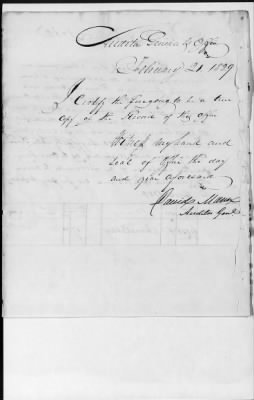 Auditor Generals Office
February 21 1829
I Certify the foregoing to be a true
copy of the Record of this Office
Witness my hand and
seal of Office the day
and year aforesaid
David Mann
Auditor Genl